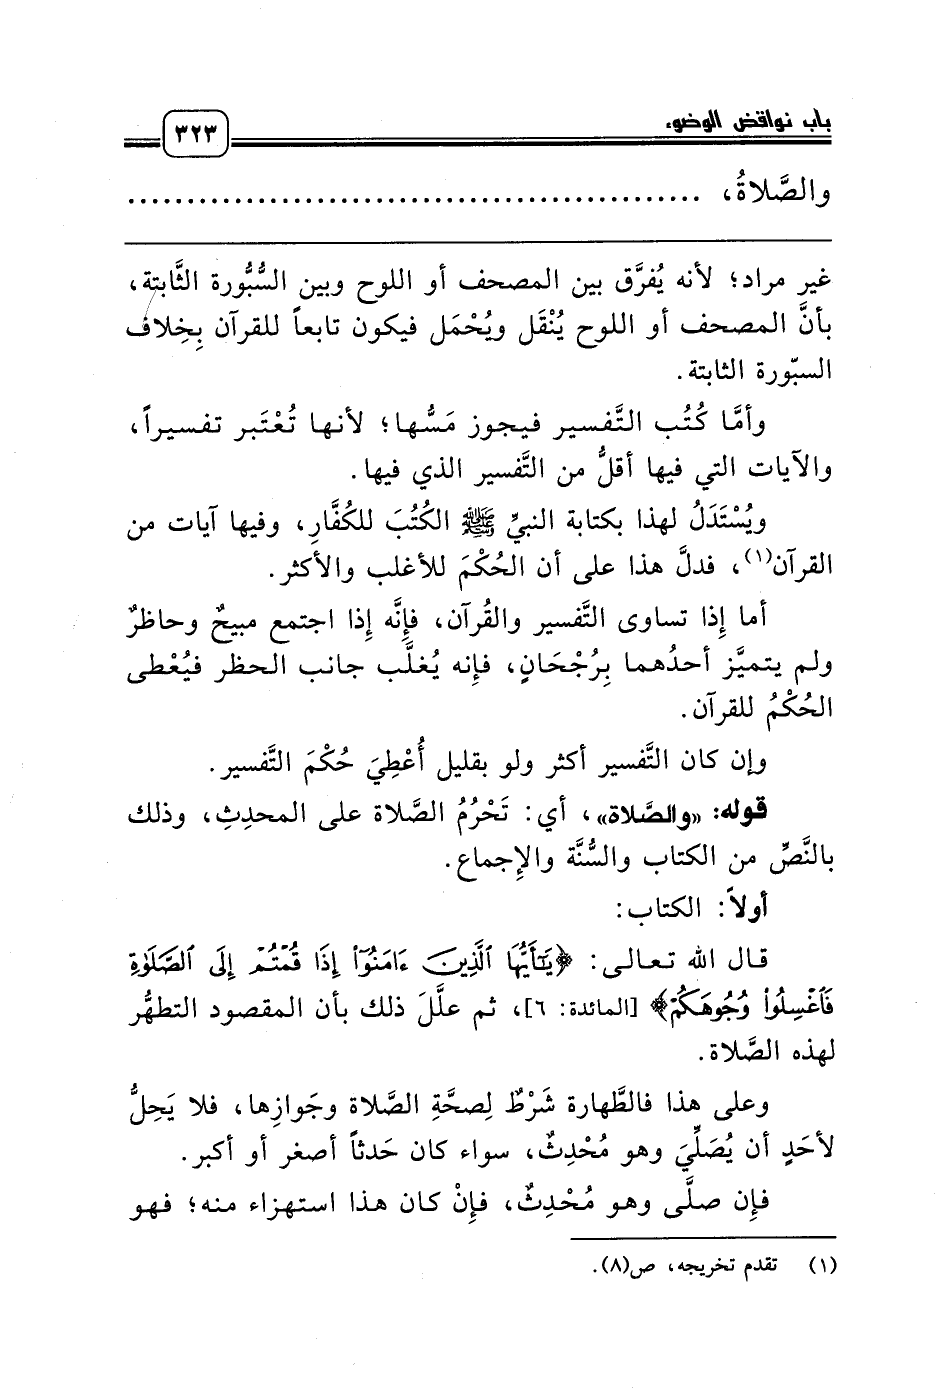 باب نواقض الوضوء ٣٢٣
والصَّلاةُ، ................................................
غير مراد؛ لأنه يُفرَّق بين المصحف أو اللوح وبين السُّبُّورة الثَّابتة،
بأنَّ المصحف أو اللوح يُنْقَل ويُحْمَل فيكون تابعاً للقرآن بِخِلاف
السبّورة الثابتة.
وأمَّا كُتُب التَّفسير فيجوز مَسُّها؛ لأنها تُعْتَبر تفسيراً،
والآيات التي فيها أقلُّ من التَّفسير الذي فيها.
ويُسْتَدَلُ لهذا بكتابة النبيِّ ﷺ الكُتُبَ للكُفَّارِ، وفيها آيات من
القرآن(١)، فدلَّ هذا على أن الحُكْمَ للأغلب والأكثر.
أما إِذا تساوى التَّفسير والقُرآن، فإِنَّه إِذا اجتمع مبيحٌ وحاظرٌ
ولم يتميَّز أحدُهما بِرُجْحَانٍ، فإنه يُغلَّب جانب الحظر فيُعْطى
الحُكْمُ للقرآن.
وإن كان التَّفسير أكثر ولو بقليل أُعْطِيَ حُكْمَ التَّفسير.
قوله: «والصَّلاة»، أي: تَحْرُمُ الصَّلاة على المحدِثِ، وذلك
بالنَّصِّ من الكتاب والسُّنَّة والإِجماع.
أولاً: الكتاب:
قال الله تعالى: ﴿يَٰٓأَيُّهَا ٱلَّذِينَ ءَامَنُوٓا۟ إِذَا قُمْتُمْ إِلَى ٱلصَّلَوٰةِ
فَٱغْسِلُوا۟ وُجُوهَكُمْ﴾ [المائدة: ٦]، ثم علَّلَ ذلك بأن المقصود التطهُّر
لهذه الصَّلاة.
وعلى هذا فالطَّهارة شَرْطٌ لِصحَّةِ الصَّلاة وجَوازِها، فلا يَحِلُّ
لأحَدٍ أن يُصَلِّيَ وهو مُحْدِثٌ، سواء كان حَدثاً أصغر أو أكبر.
فإِن صلَّى وهو مُحْدِثٌ، فإِنْ كان هذا استهزاء منه؛ فهو
(١) تقدم تخريجه، ص(٨).